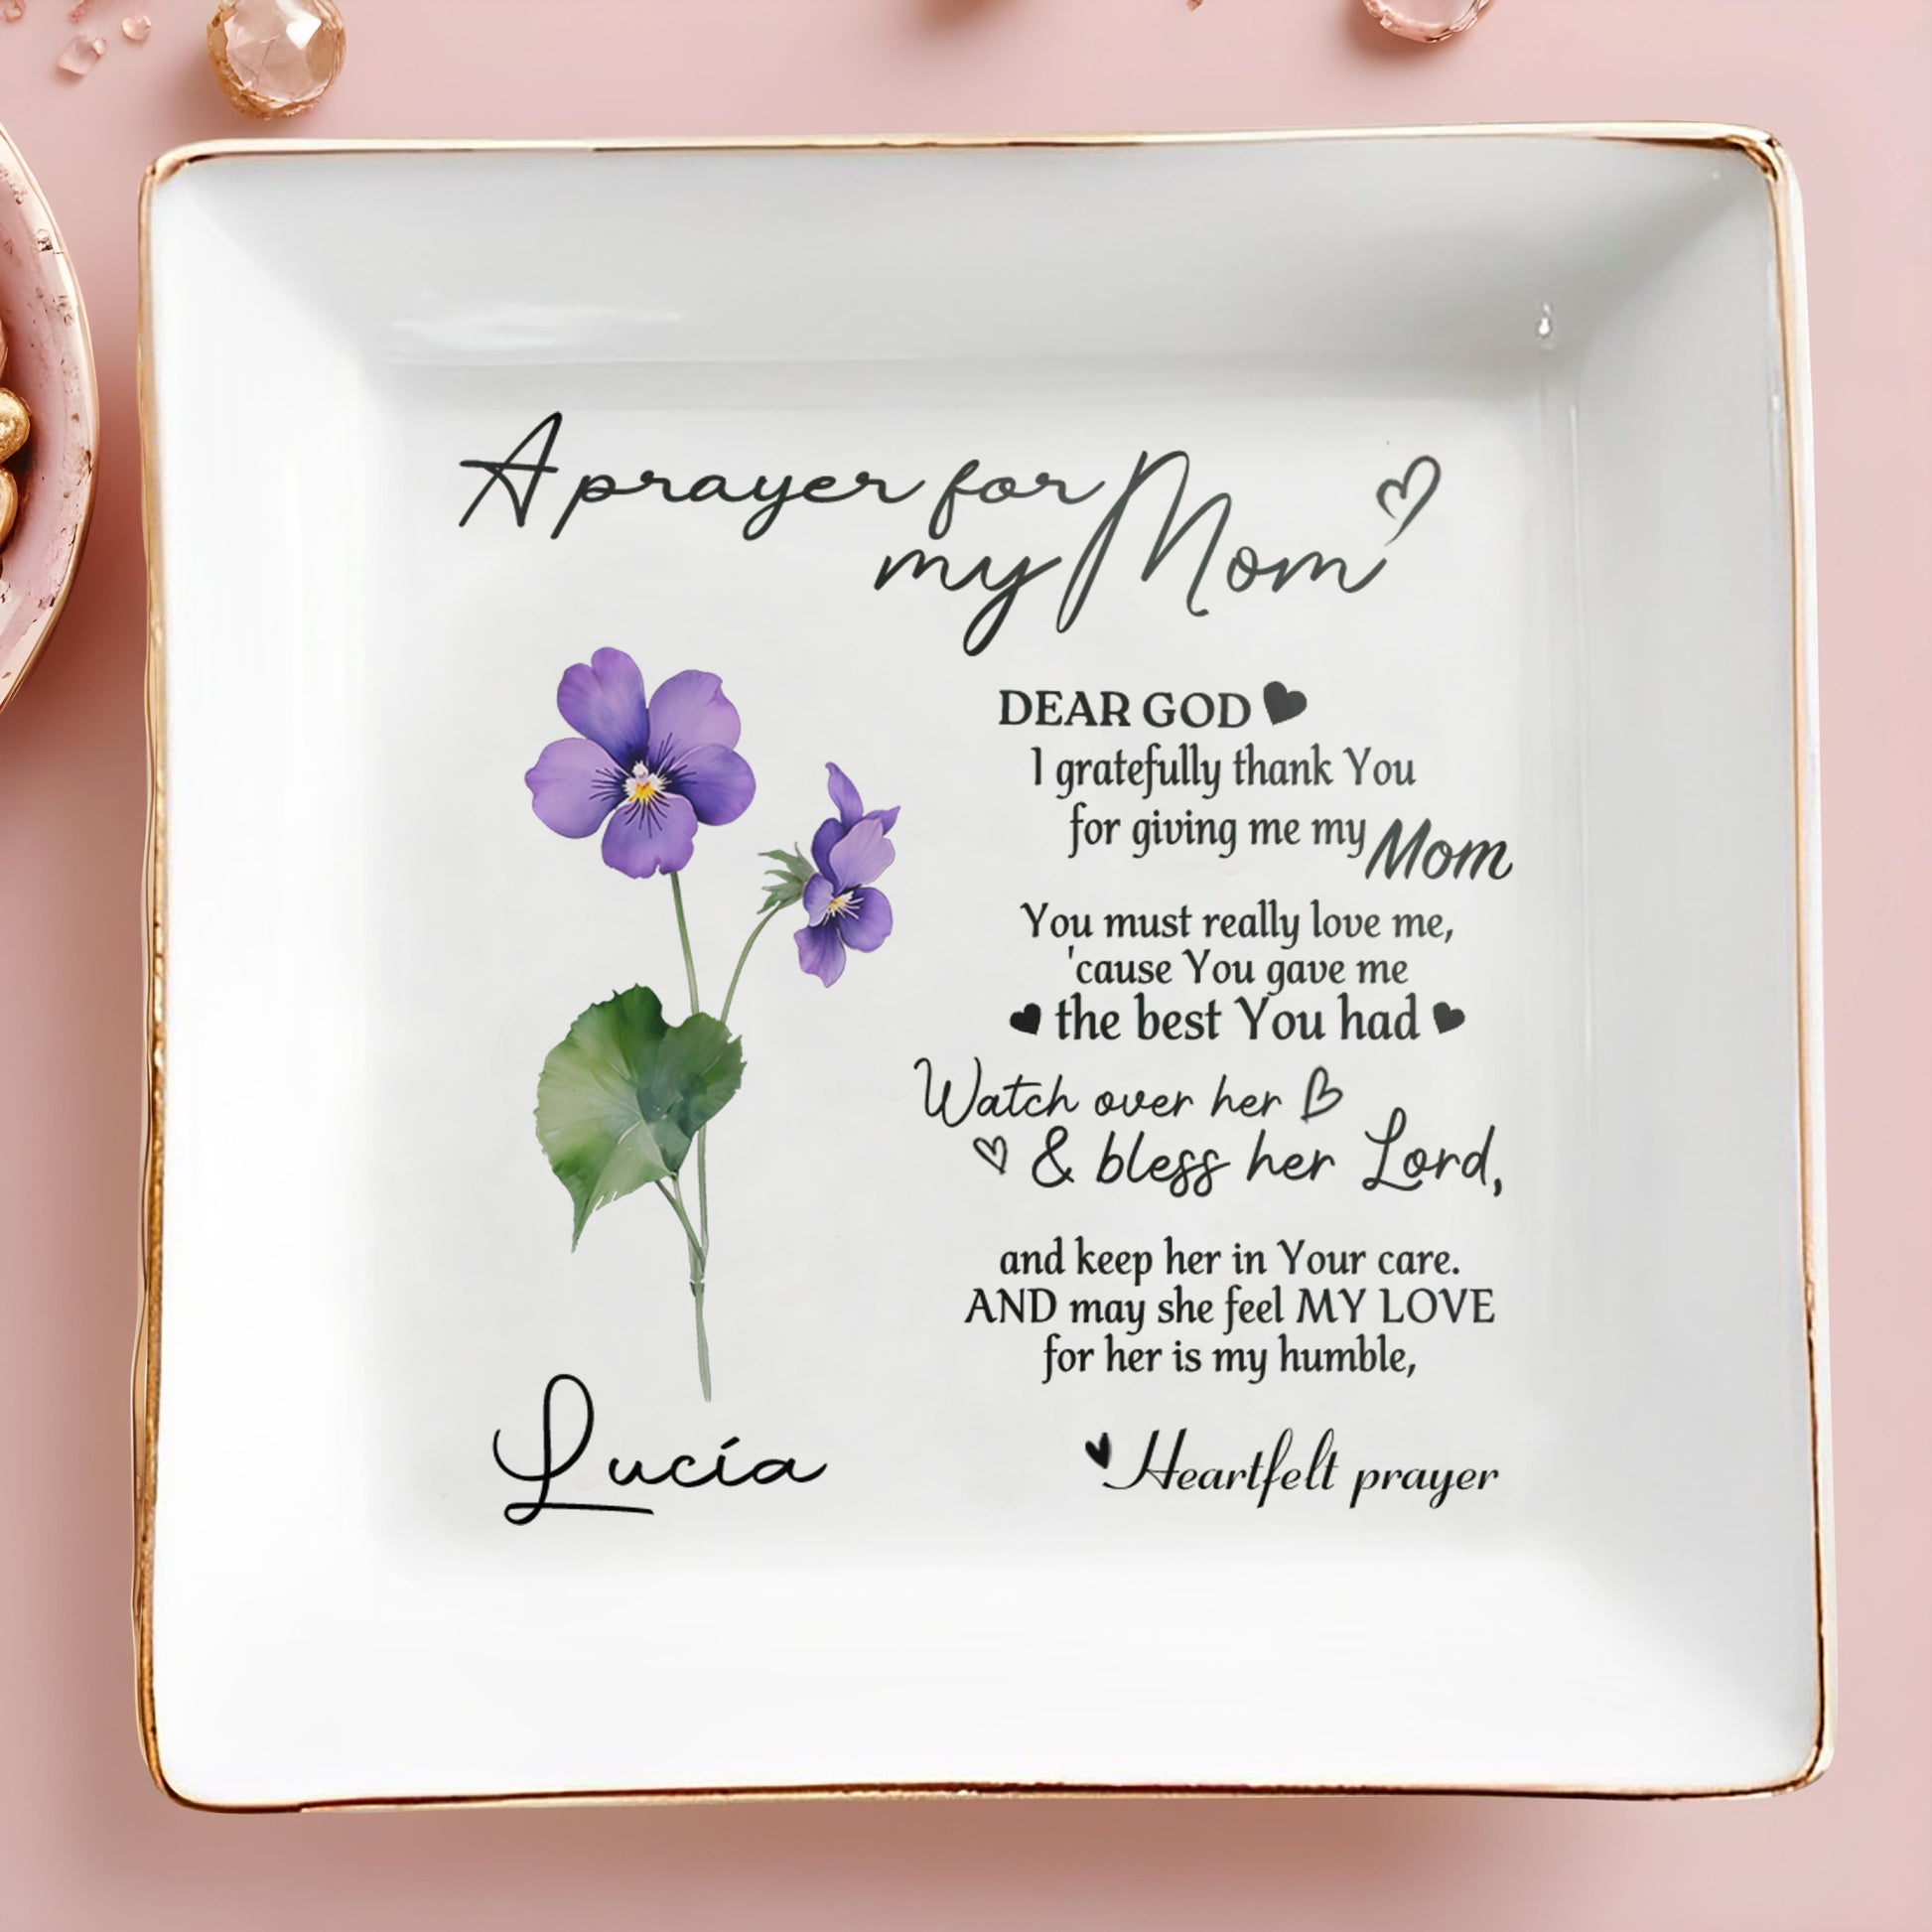 A prayer for
my Mom
DEAR GOD
I gratefully thank You
for giving me my Mom
You must really love me,
'cause You gave me
the best You had
Watch over her
& bless her Lord,
and keep her in Your care.
AND may she feel MY LOVE
for her is my humble,
Heartfelt prayer
Lucía